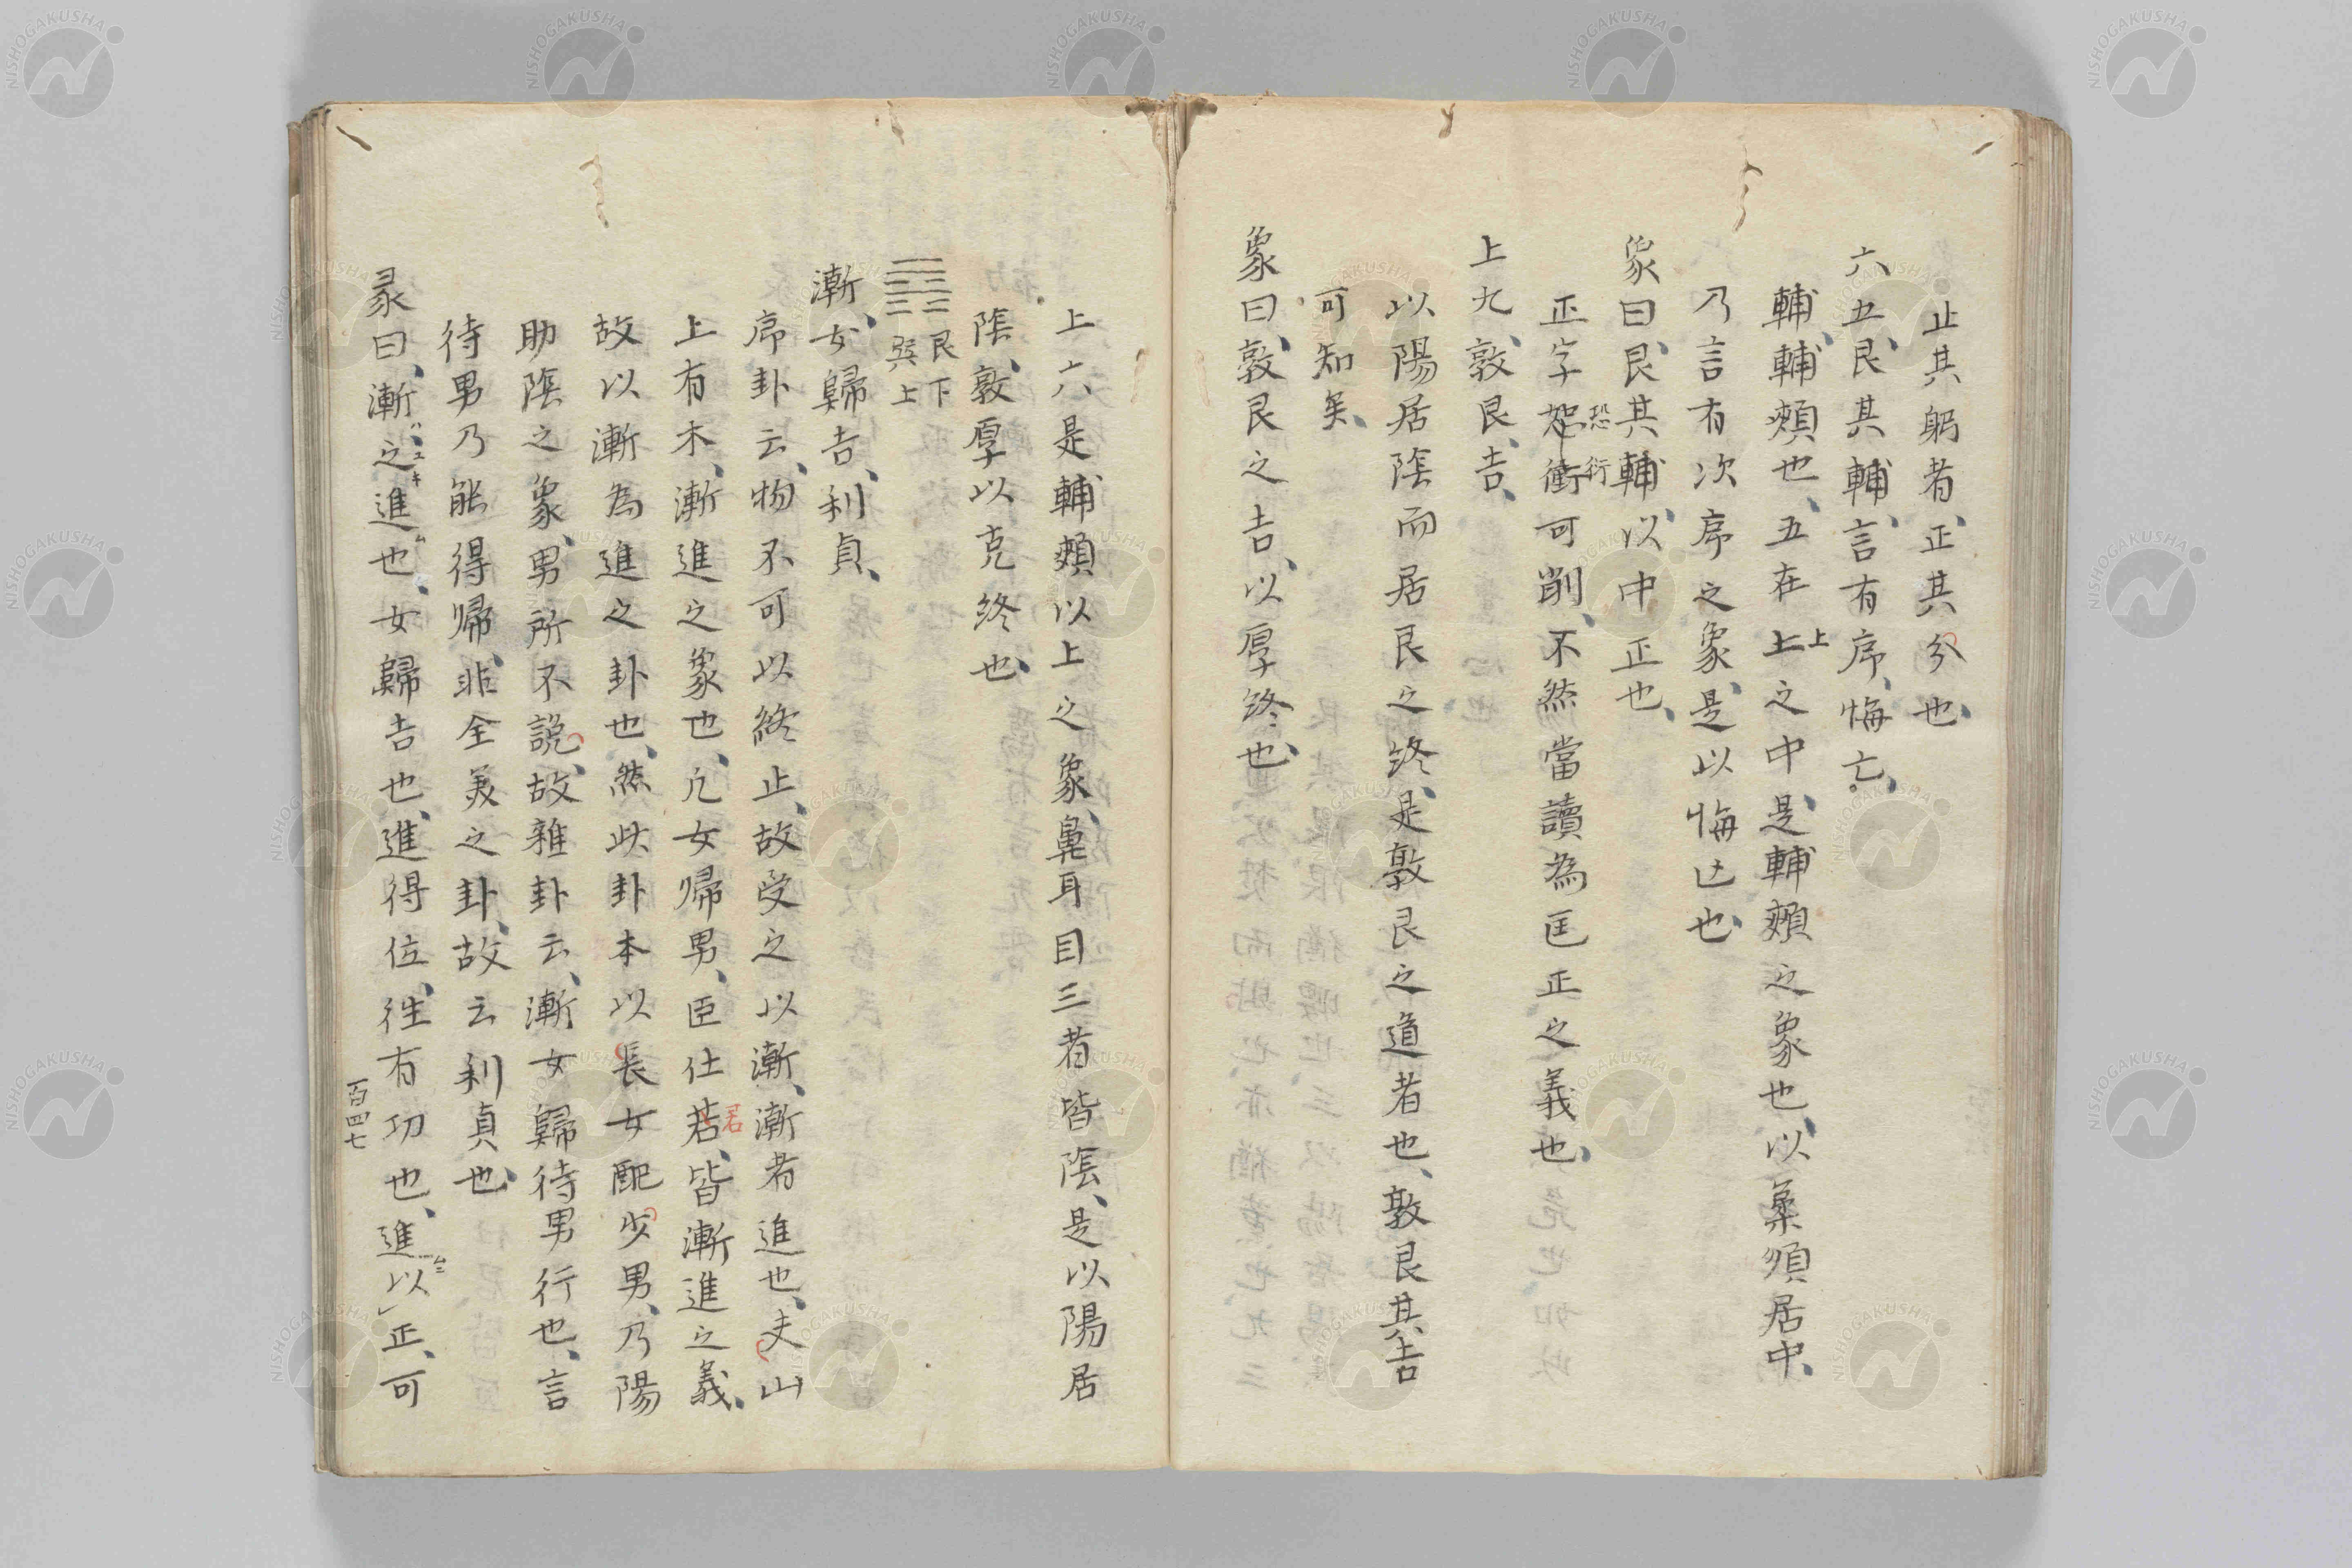 止其躬者、正其分也、
六五、艮其輔、言有序、悔亡、
輔、輔頰也、五在上之中、是輔頰之象也、以柔順居中、
乃言有次序之象、是以悔亡也、
象曰、艮其輔、以中正也、
正字恐衍可削、不然當讀為匡正之義也、
上九、敦艮、吉、
以陽居陰而居艮之終、是敦艮之道者也、敦艮其吉
可知矣、
象曰、敦艮之吉、以厚終也、
上六是輔頰以上之象、鼻耳目三者皆陰、是以陽居
陰、敦厚以克終也、
艮下
巽上
漸、女歸吉、利貞、
序卦云、物不可以終止、故受之以漸、漸者進也、夫山
上有木、漸進之象也、凡女帰男、臣仕君、皆漸進之義、
故以漸為進之卦也、然此卦本以長女配少男、乃陽
助陰之象、男所不説、故雜卦云、漸女歸待男行也、言
待男乃能得帰、非全美之卦、故云利貞也、
彖曰、漸之進也、女歸吉也、進得位、往有功也、進以正、可
百四七
NISHOGAKUSHA